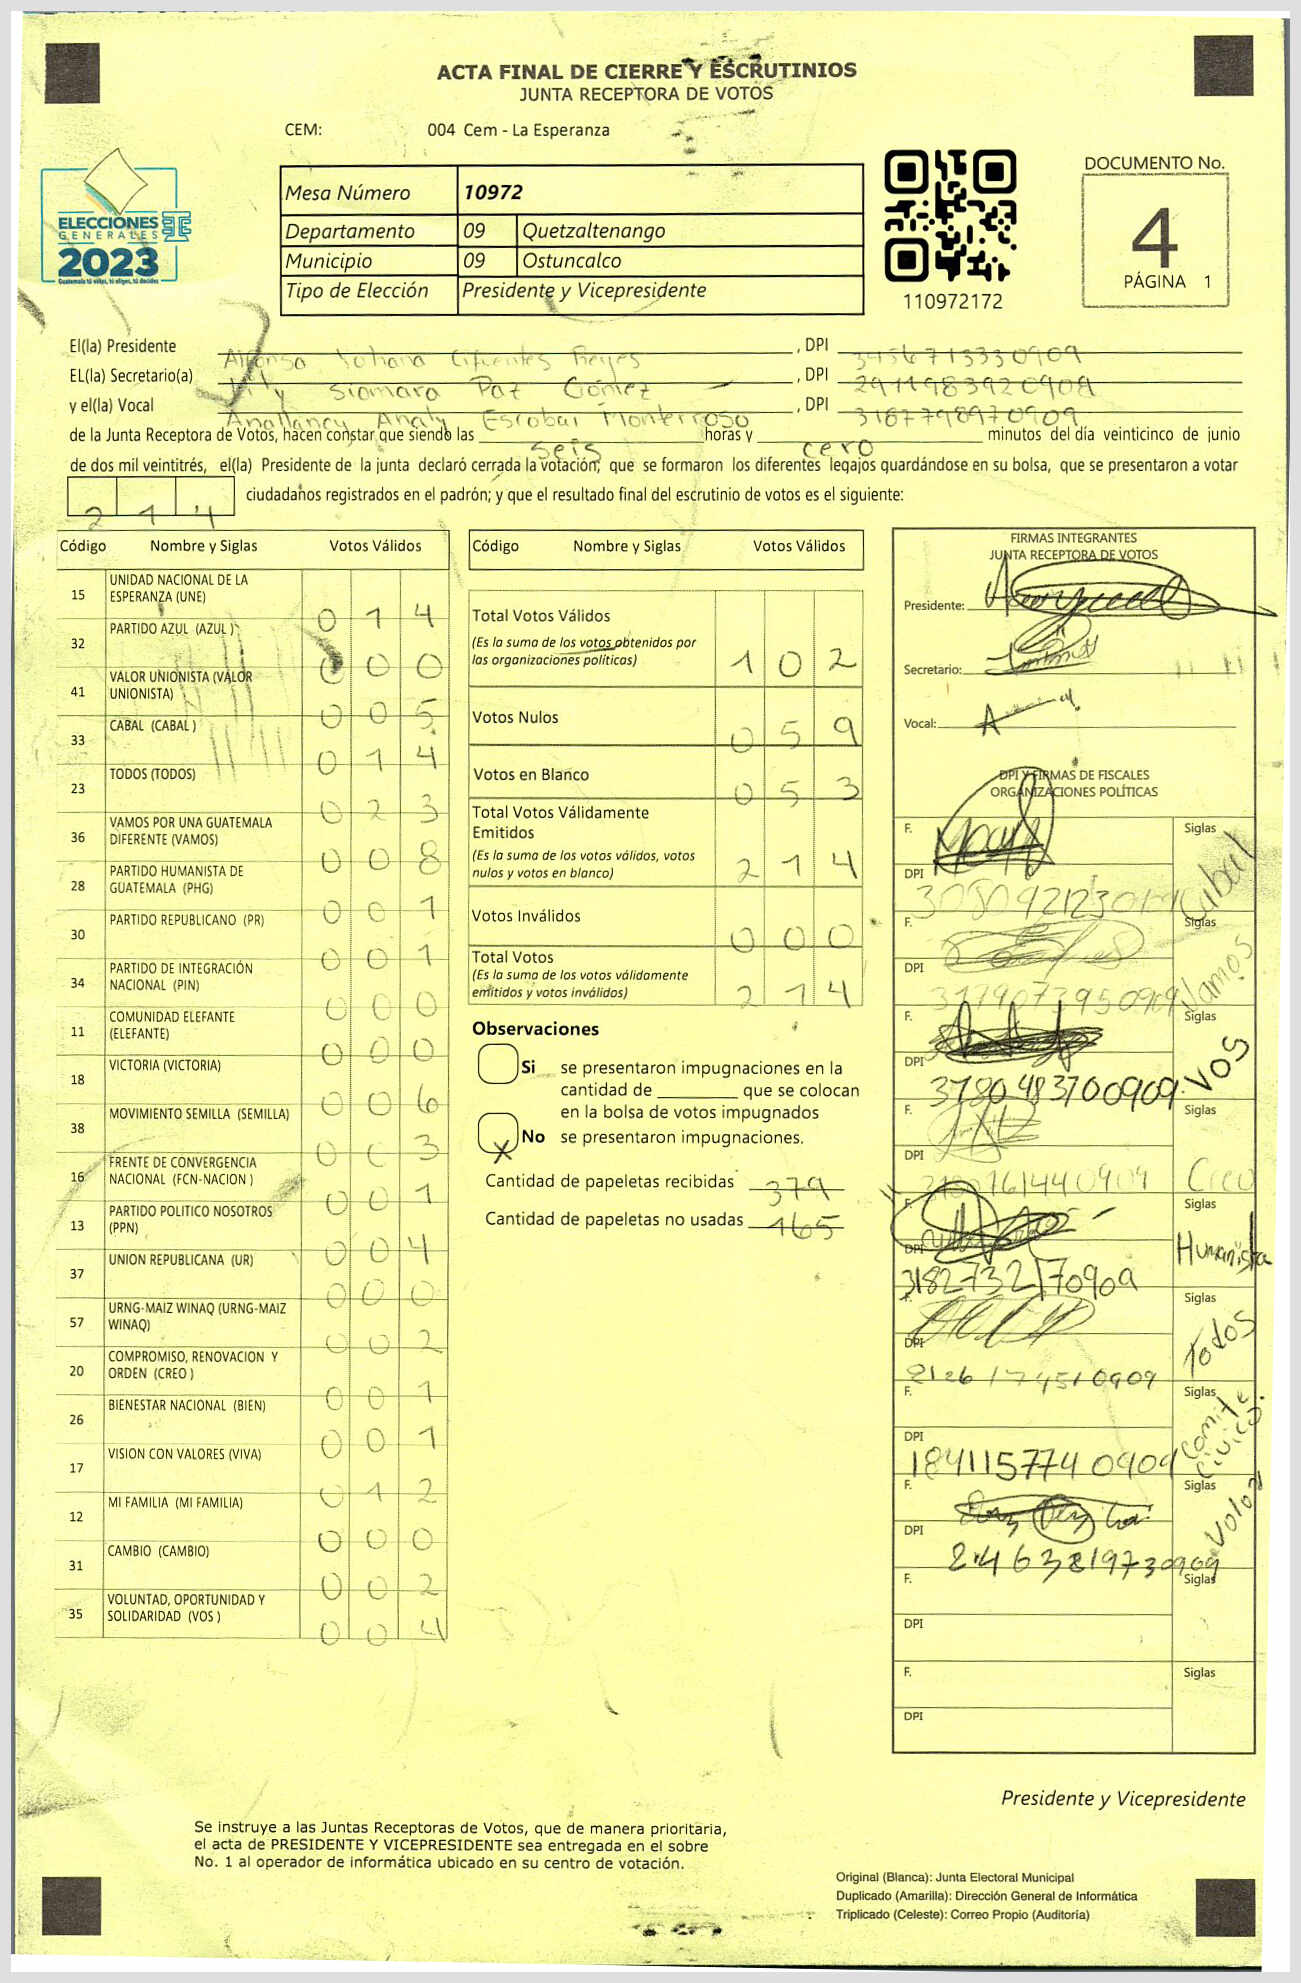 ACTA FINAL DE CIERRE Y ESCRUTINIOS
JUNTA RECEPTORA DE VOTOS
CEM: 004 Cem - La Esperanza
ELECCIONES
GENERALES
2023
Guatemala tú votas, tú eliges, tú decides
Mesa Número 10972
Departamento 09 Quetzaltenango
Municipio 09 Ostuncalco
Tipo de Elección Presidente y Vicepresidente
110972172
DOCUMENTO No.
4
PÁGINA 1
El(la) Presidente Cifuentes Reyes , DPI 3456713330909
EL(la) Secretario(a) Siomara Paz Gómez , DPI 2911983920908
y el(la) Vocal Anallancy Analy Escobar Monterroso , DPI 3187798970909
de la Junta Receptora de Votos, hacen constar que siendo las seis horas y cero minutos del día veinticinco de junio
de dos mil veintitrés, el(la) Presidente de la junta declaró cerrada la votación, que se formaron los diferentes legajos guardándose en su bolsa, que se presentaron a votar
214 ciudadanos registrados en el padrón; y que el resultado final del escrutinio de votos es el siguiente:
Código Nombre y Siglas Votos Válidos
15 UNIDAD NACIONAL DE LA ESPERANZA (UNE) 0 1 4
32 PARTIDO AZUL (AZUL ) 0 0 0
41 VALOR UNIONISTA (VALOR UNIONISTA) 0 0 5
33 CABAL (CABAL ) 0 1 4
23 TODOS (TODOS) 0 2 3
36 VAMOS POR UNA GUATEMALA DIFERENTE (VAMOS) 0 0 8
28 PARTIDO HUMANISTA DE GUATEMALA (PHG) 0 0 1
30 PARTIDO REPUBLICANO (PR) 0 0 1
34 PARTIDO DE INTEGRACIÓN NACIONAL (PIN) 0 0 0
11 COMUNIDAD ELEFANTE (ELEFANTE) 0 0 0
18 VICTORIA (VICTORIA) 0 0 6
38 MOVIMIENTO SEMILLA (SEMILLA) 0 0 3
16 FRENTE DE CONVERGENCIA NACIONAL (FCN-NACION ) 0 0 1
13 PARTIDO POLITICO NOSOTROS (PPN) 0 0 4
37 UNION REPUBLICANA (UR) 0 0 0
57 URNG-MAIZ WINAQ (URNG-MAIZ WINAQ) 0 0 2
20 COMPROMISO, RENOVACION Y ORDEN (CREO ) 0 0 1
26 BIENESTAR NACIONAL (BIEN) 0 0 1
17 VISION CON VALORES (VIVA) 0 1 2
12 MI FAMILIA (MI FAMILIA) 0 0 0
31 CAMBIO (CAMBIO) 0 0 2
35 VOLUNTAD, OPORTUNIDAD Y SOLIDARIDAD (VOS ) 0 0 4
Código Nombre y Siglas Votos Válidos
Total Votos Válidos
(Es la suma de los votos obtenidos por
las organizaciones políticas) 1 0 2
Votos Nulos 0 5 9
Votos en Blanco 0 5 3
Total Votos Válidamente
Emitidos
(Es la suma de los votos válidos, votos
nulos y votos en blanco) 2 1 4
Votos Inválidos 0 0 0
Total Votos
(Es la suma de los votos válidamente
emitidos y votos inválidos) 2 1 4
Observaciones
Si se presentaron impugnaciones en la
cantidad de ________ que se colocan
en la bolsa de votos impugnados
X No se presentaron impugnaciones.
Cantidad de papeletas recibidas 379
Cantidad de papeletas no usadas 165
FIRMAS INTEGRANTES
JUNTA RECEPTORA DE VOTOS
Presidente:
Secretario:
Vocal:
DPI Y FIRMAS DE FISCALES
ORGANIZACIONES POLÍTICAS
F. Siglas Cabal
DPI
F. Siglas Vamos
DPI 3179073950909
F. Siglas VOS
DPI 3780483700909
F. Siglas Creo
DPI
F. Siglas Humanista
DPI 3182732170909
F. Siglas Todos
DPI 2126174510909
F. Siglas Comite Civico.
DPI 1841157740909
F. Siglas
DPI
F. Siglas
DPI
F. Siglas
DPI
Presidente y Vicepresidente
Se instruye a las Juntas Receptoras de Votos, que de manera prioritaria,
el acta de PRESIDENTE Y VICEPRESIDENTE sea entregada en el sobre
No. 1 al operador de informática ubicado en su centro de votación.
Original (Blanca): Junta Electoral Municipal
Duplicado (Amarilla): Dirección General de Informática
Triplicado (Celeste): Correo Propio (Auditoría)